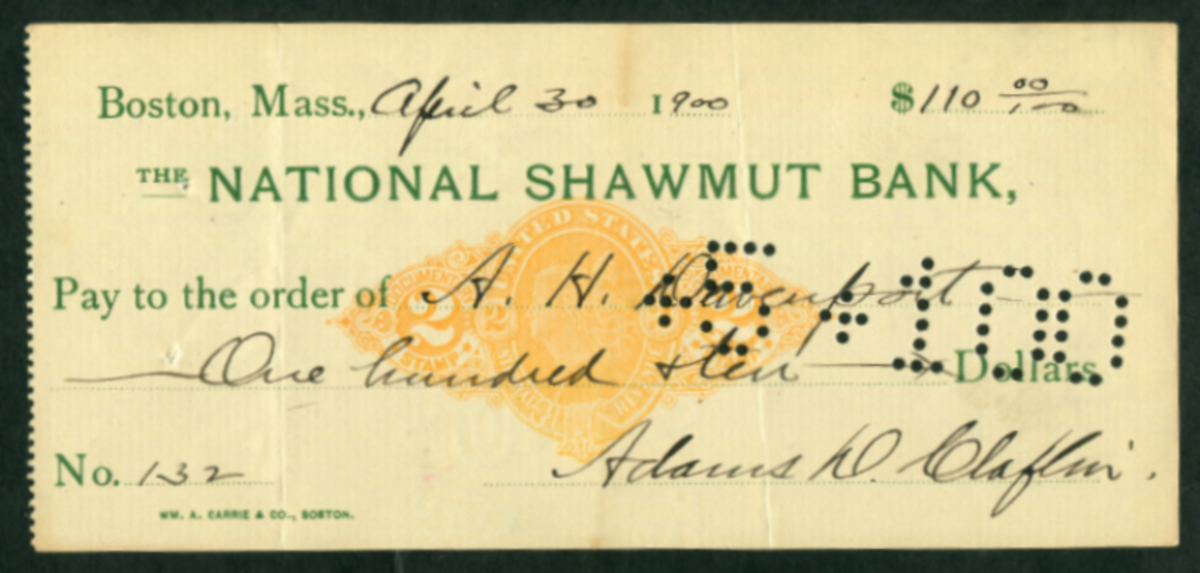 Boston, Mass., April 30 1900 $110 00/100
THE NATIONAL SHAWMUT BANK,
UNITED STATES
Pay to the order of A. H. Davenport
DOCUMENTARY 2 2 2
STAMP
One hundred & ten Dollars
No. 132 Adams D. Claflin.
WM. A. CARRIE & CO., BOSTON.